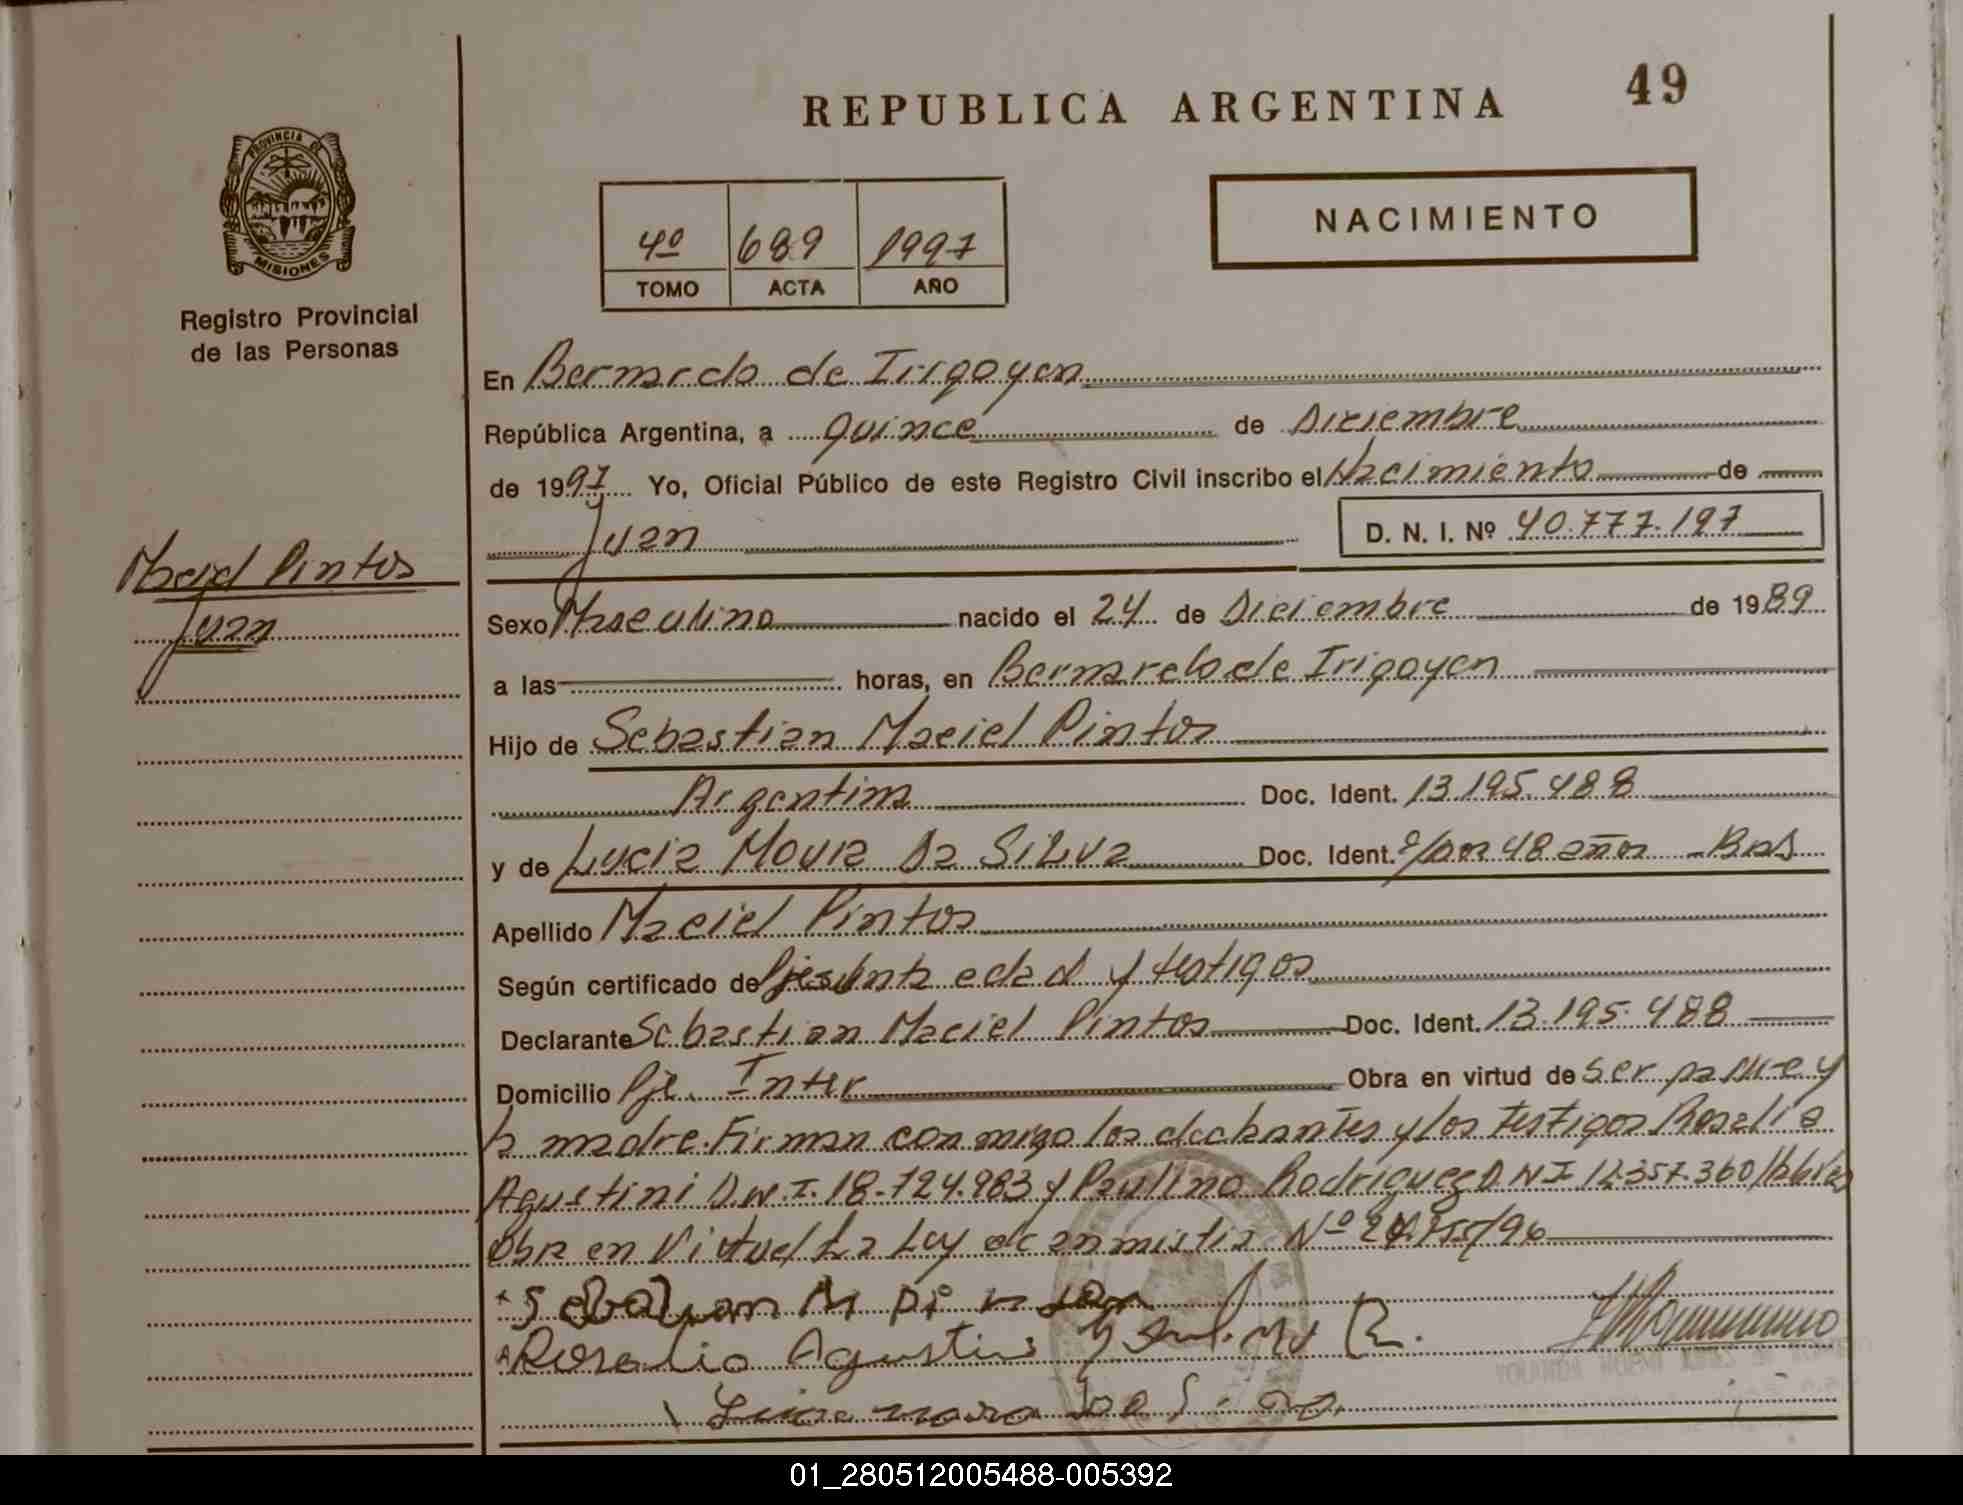 REPUBLICA ARGENTINA
49
PROVINCIA DE
MISIONES
Registro Provincial
de las Personas
4º 689 1997
TOMO ACTA AÑO
NACIMIENTO
En Bernardo de Irigoyen
República Argentina, a quince de Diciembre
de 1997 Yo, Oficial Público de este Registro Civil inscribo el Nacimiento de
Juan
D. N. I. Nº 40.777.197
Maciel Pintos
Juan
Sexo Masculino nacido el 24 de Diciembre de 1989
a las horas, en Bernardo de Irigoyen
Hijo de Sebastian Maciel Pintos
Argentina Doc. Ident. 13.195.488
y de Lucia Moura Da Silva Doc. Ident. 48 años Bras
Apellido Maciel Pintos
Según certificado de Presunta edad y testigos
Declarante Sebastian Maciel Pintos Doc. Ident. 13.195.488
Domicilio Pje. Inter Obra en virtud de ser padre y
la madre. Firman conmigo los declarantes y los testigos Rosalia
Agustini D.N.I. 18.724.983 y Paulino Rodriguez D N I 12.357.360
Obra en Virtud La Ley de anmistia Nº /96
Sebastian M pintos
Rosalia Agustini
01_280512005488-005392